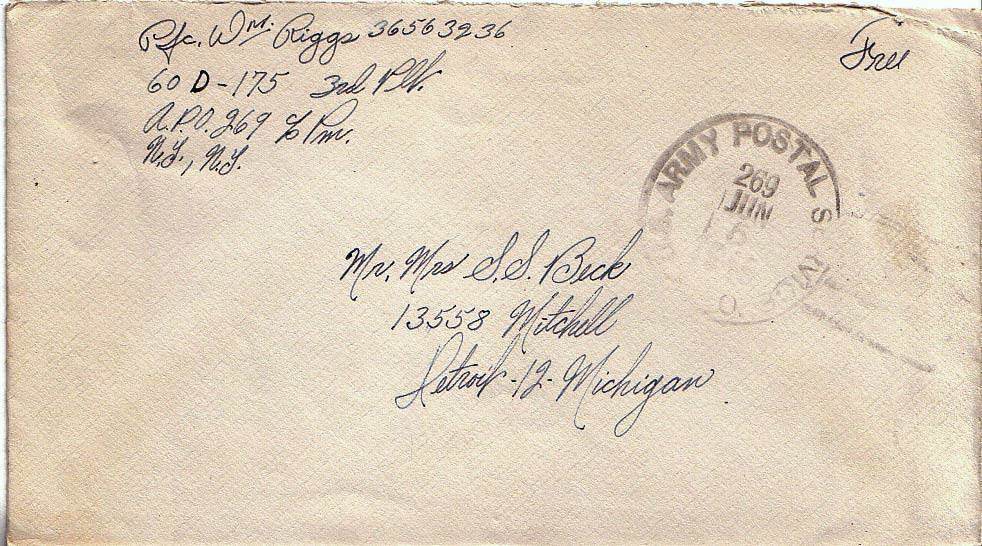 Pfc. Wm. Riggs 36563236
Free
60 D-175 3rd Plt.
A.P.O. 269 % Pm.
N.Y., N.Y.
ARMY POSTAL
269
JUN
6
Mr. Mrs S.S. Beck
13558 Mitchell
Detroit -12- Michigan